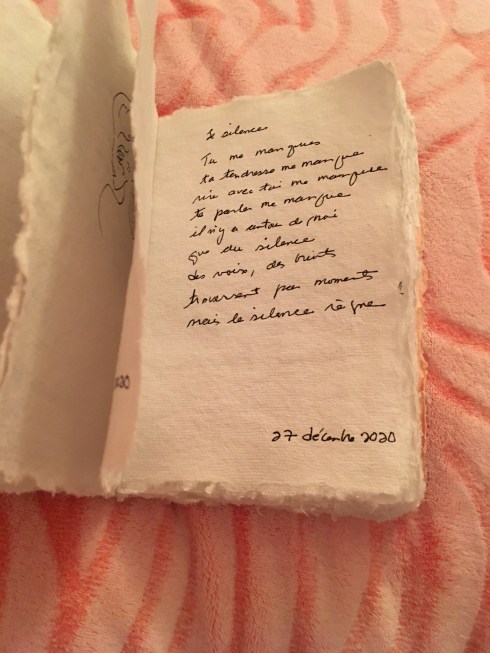 Le silence
Tu me manques
ta tendresse me manque
rire avec toi me manque
te parler me manque
il n'y a autour de moi
que du silence
des voix, des bruits
traversent par moments
mais le silence règne
27 décembre 2020
2020